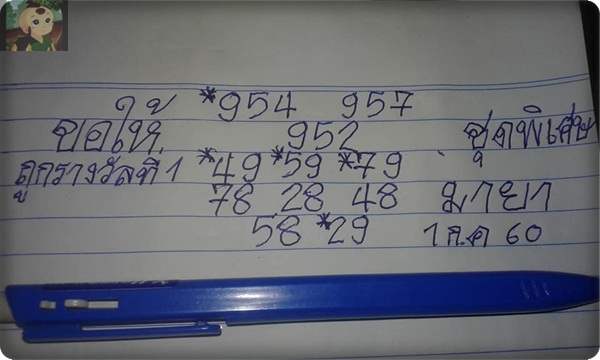 *954 957
ขอให้ 952 ชุดพิเศษ
ถูกรางวัลที่1 *49 *59 *79
78 28 48 มายา
58 *29 1 ก.ค 60